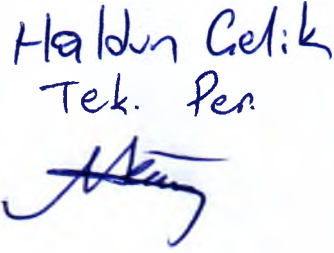 Haldun Celik
Tek. Per.